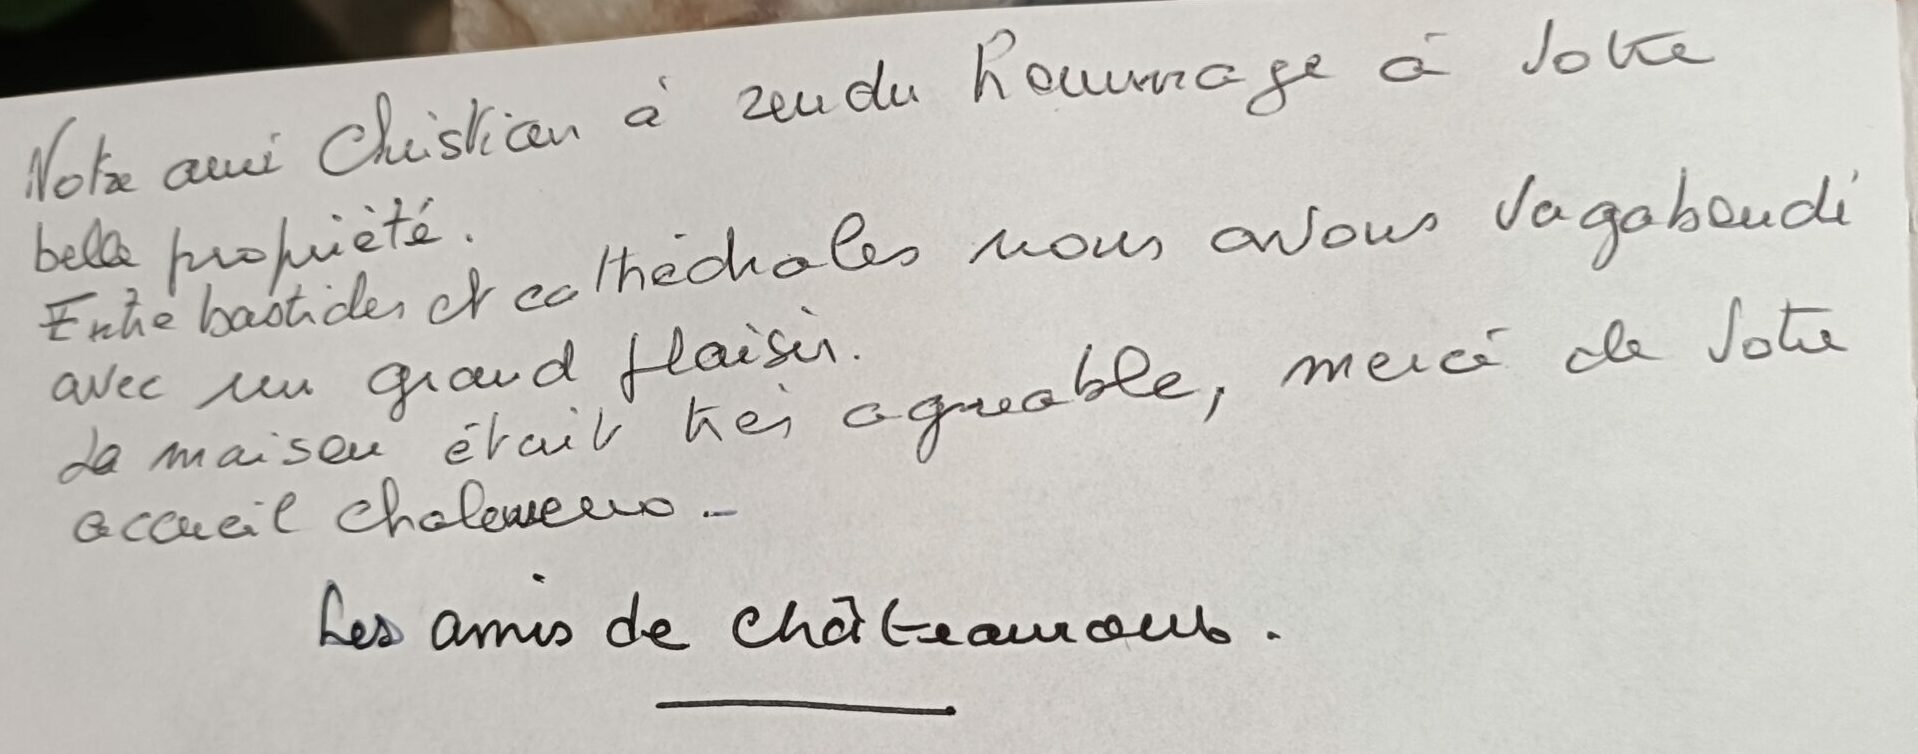 Notre ami Christian à rendu hommage à votre
belle propriété.
Entre bastides et cathédrales nous avons vagabondé
avec un grand plaisir.
La maison était très agréable, merci de votre
accueil chaleureux.
Les amis de châteaumont.